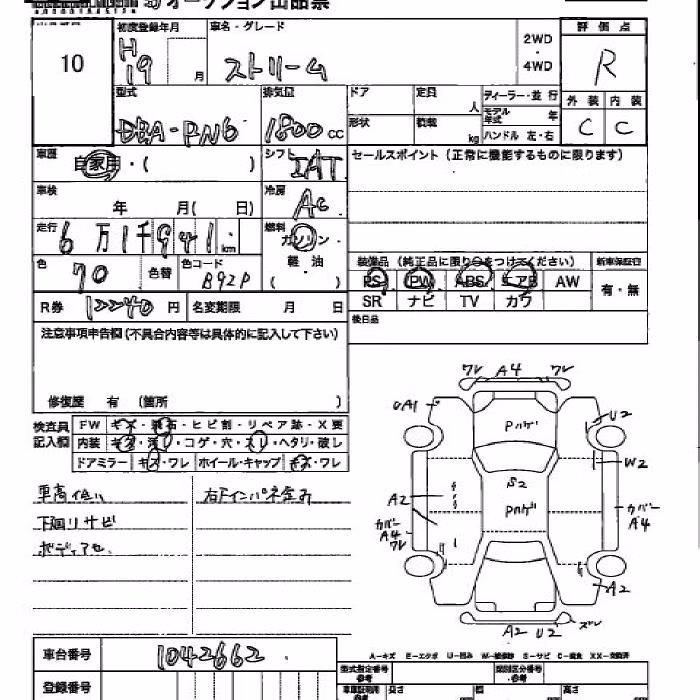 オークション出品票
10
初度登録年月
H
19 月
車名・グレード
ストリーム
2WD
・
4WD
評価点
R
外装 内装
C C
型式
DBA-RN6
排気量
1800 cc
ドア
定員
人
形状
積載
kg
ディーラー・並行
モデル年式 年
ハンドル 左・右
車歴
自家用・( )
シフト
IAT
セールスポイント (正常に機能するものに限ります)
車検
年 月( 日)
冷房
AC
走行
6万1千941 km
燃料
ガソリン・
軽・油
( )
色
70
色替
色コード
B92P
装備品 (純正品に限り○をつけてください)
新車保証書
PS PW ABS エアB AW
SR ナビ TV カワ
有・無
R券 12240 円
名変期限 月 日
後日品
注意事項申告欄(不具合内容等は具体的に記入して下さい)
修復歴 有 (箇所 )
検査員
記入欄
FW キズ・飛石・ヒビ割・リペア跡・X要
内装 キズ・汚・コゲ・穴・スレ・ヘタリ・破レ
ドアミラー キズ・ワレ ホイール・キャップ キズ・ワレ
車高低い
下廻りサビ
右Fインパネ歪み
ワレ A4 ワレ
UA1
U2
W2
S2
A2
カバー
A4
ワレ
カバー
A4
A2
A2 U2 ズレ
A-キズ E-エクボ U-凹み W-補修跡 S-サビ C-腐食 XX-交換済
車台番号 1042662
登録番号
型式指定番号
参考
類別区分番号
参考
長さ
幅
高さ